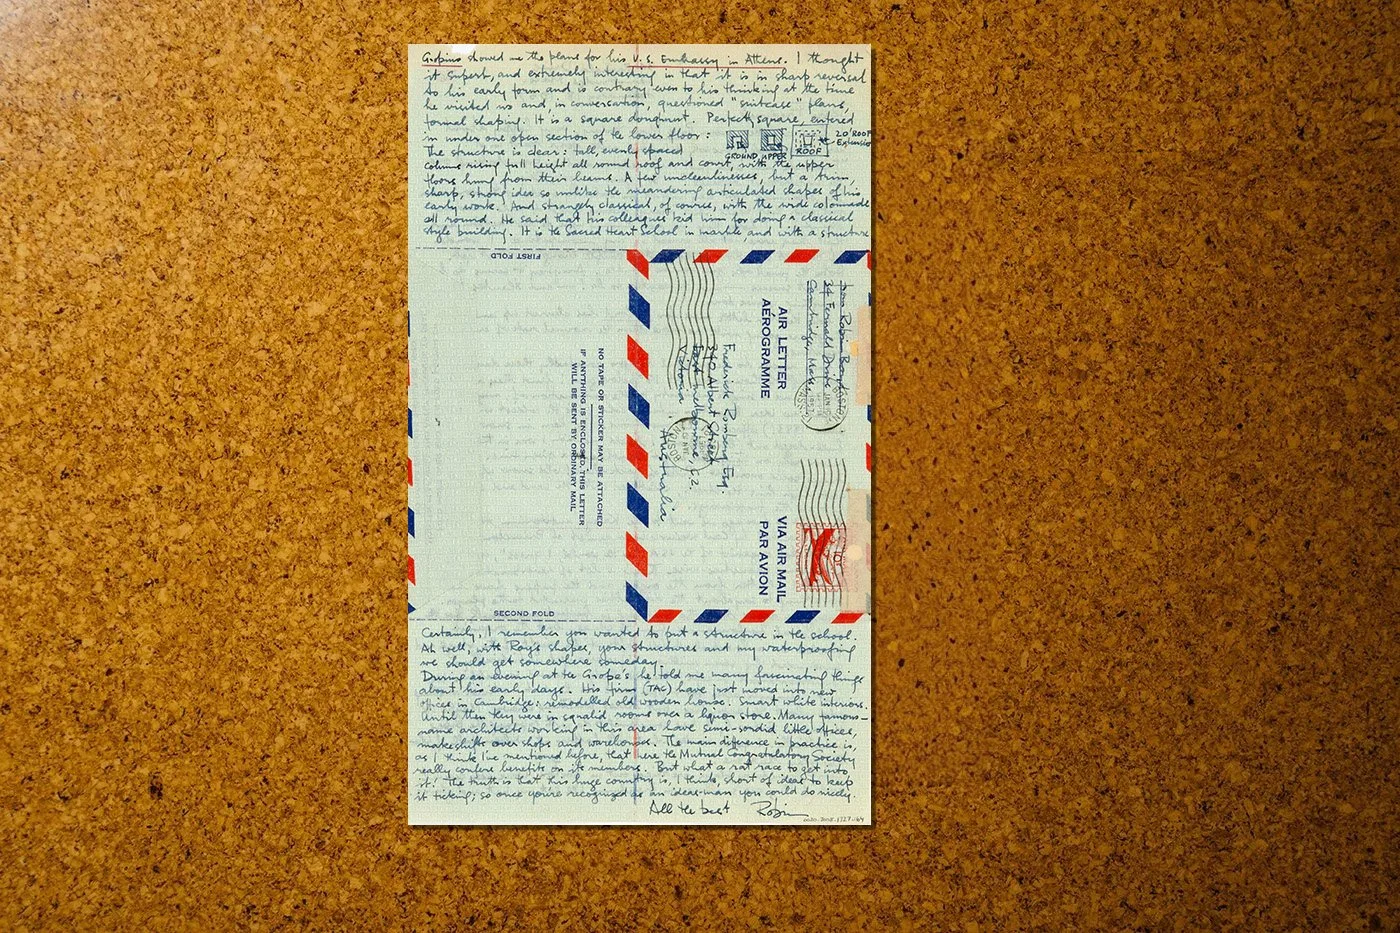 Gropius showed me the plans for his U.S. Embassy in Athens. I thought
it superb, and extremely interesting in that it is in sharp reversal
to his early form and is contrary even to his thinking at the time
he visited us and, in conversation, questioned "suitcase" plans,
formal shaping. It is a square doughnut. Perfectly square, entered
in under one open section of the lower floor:
GROUND UPPER ROOF 20' ROOF Extension
The structure is clear: tall, evenly spaced
columns rising full height all round roof and court, with the upper
floors hung from their beams. A few uncleanlinesses, but a trim,
sharp, strong idea so unlike the meandering articulated shapes of his
early work. And strangely classical, of course, with the wide colonnade
all round. He said that his colleagues kid him for doing a classical
style building. It is the Sacred Heart School in marble, and with a structure
FIRST FOLD
from Robin Boyd
24 Fernald Drive
Cambridge, Mass.
AIR LETTER
AÉROGRAMME
VIA AIR MAIL
PAR AVION
10¢
Frederick Romberg Esq.
340 Albert Street
East Melbourne C.2.
Victoria
Australia
NO TAPE OR STICKER MAY BE ATTACHED
IF ANYTHING IS ENCLOSED, THIS LETTER
WILL BE SENT BY ORDINARY MAIL
SECOND FOLD
Certainly, I remember you wanted to put a structure in the school.
Ah well, with Roy's shapes, your structures and my waterproofing
we should get somewhere someday.
During an evening at the Grope's he told me many fascinating things
about his early days. His firm (TAC) have just moved into new
offices in Cambridge: remodelled old wooden house: smart white interiors.
Until then they were in squalid rooms over a liquor store. Many famous-
name architects working in this area have semi-sordid little offices,
makeshifts over shops and warehouses. The main difference in practice is,
as I think I've mentioned before, that here the Mutual Congratulatory Society
really confers benefits on its members. But what a rat race to get into
it! The truth is that this huge country is, I think, short of ideas to keep
it ticking; so once you're recognized as an ideas-man you could do nicely.
All the best Robin